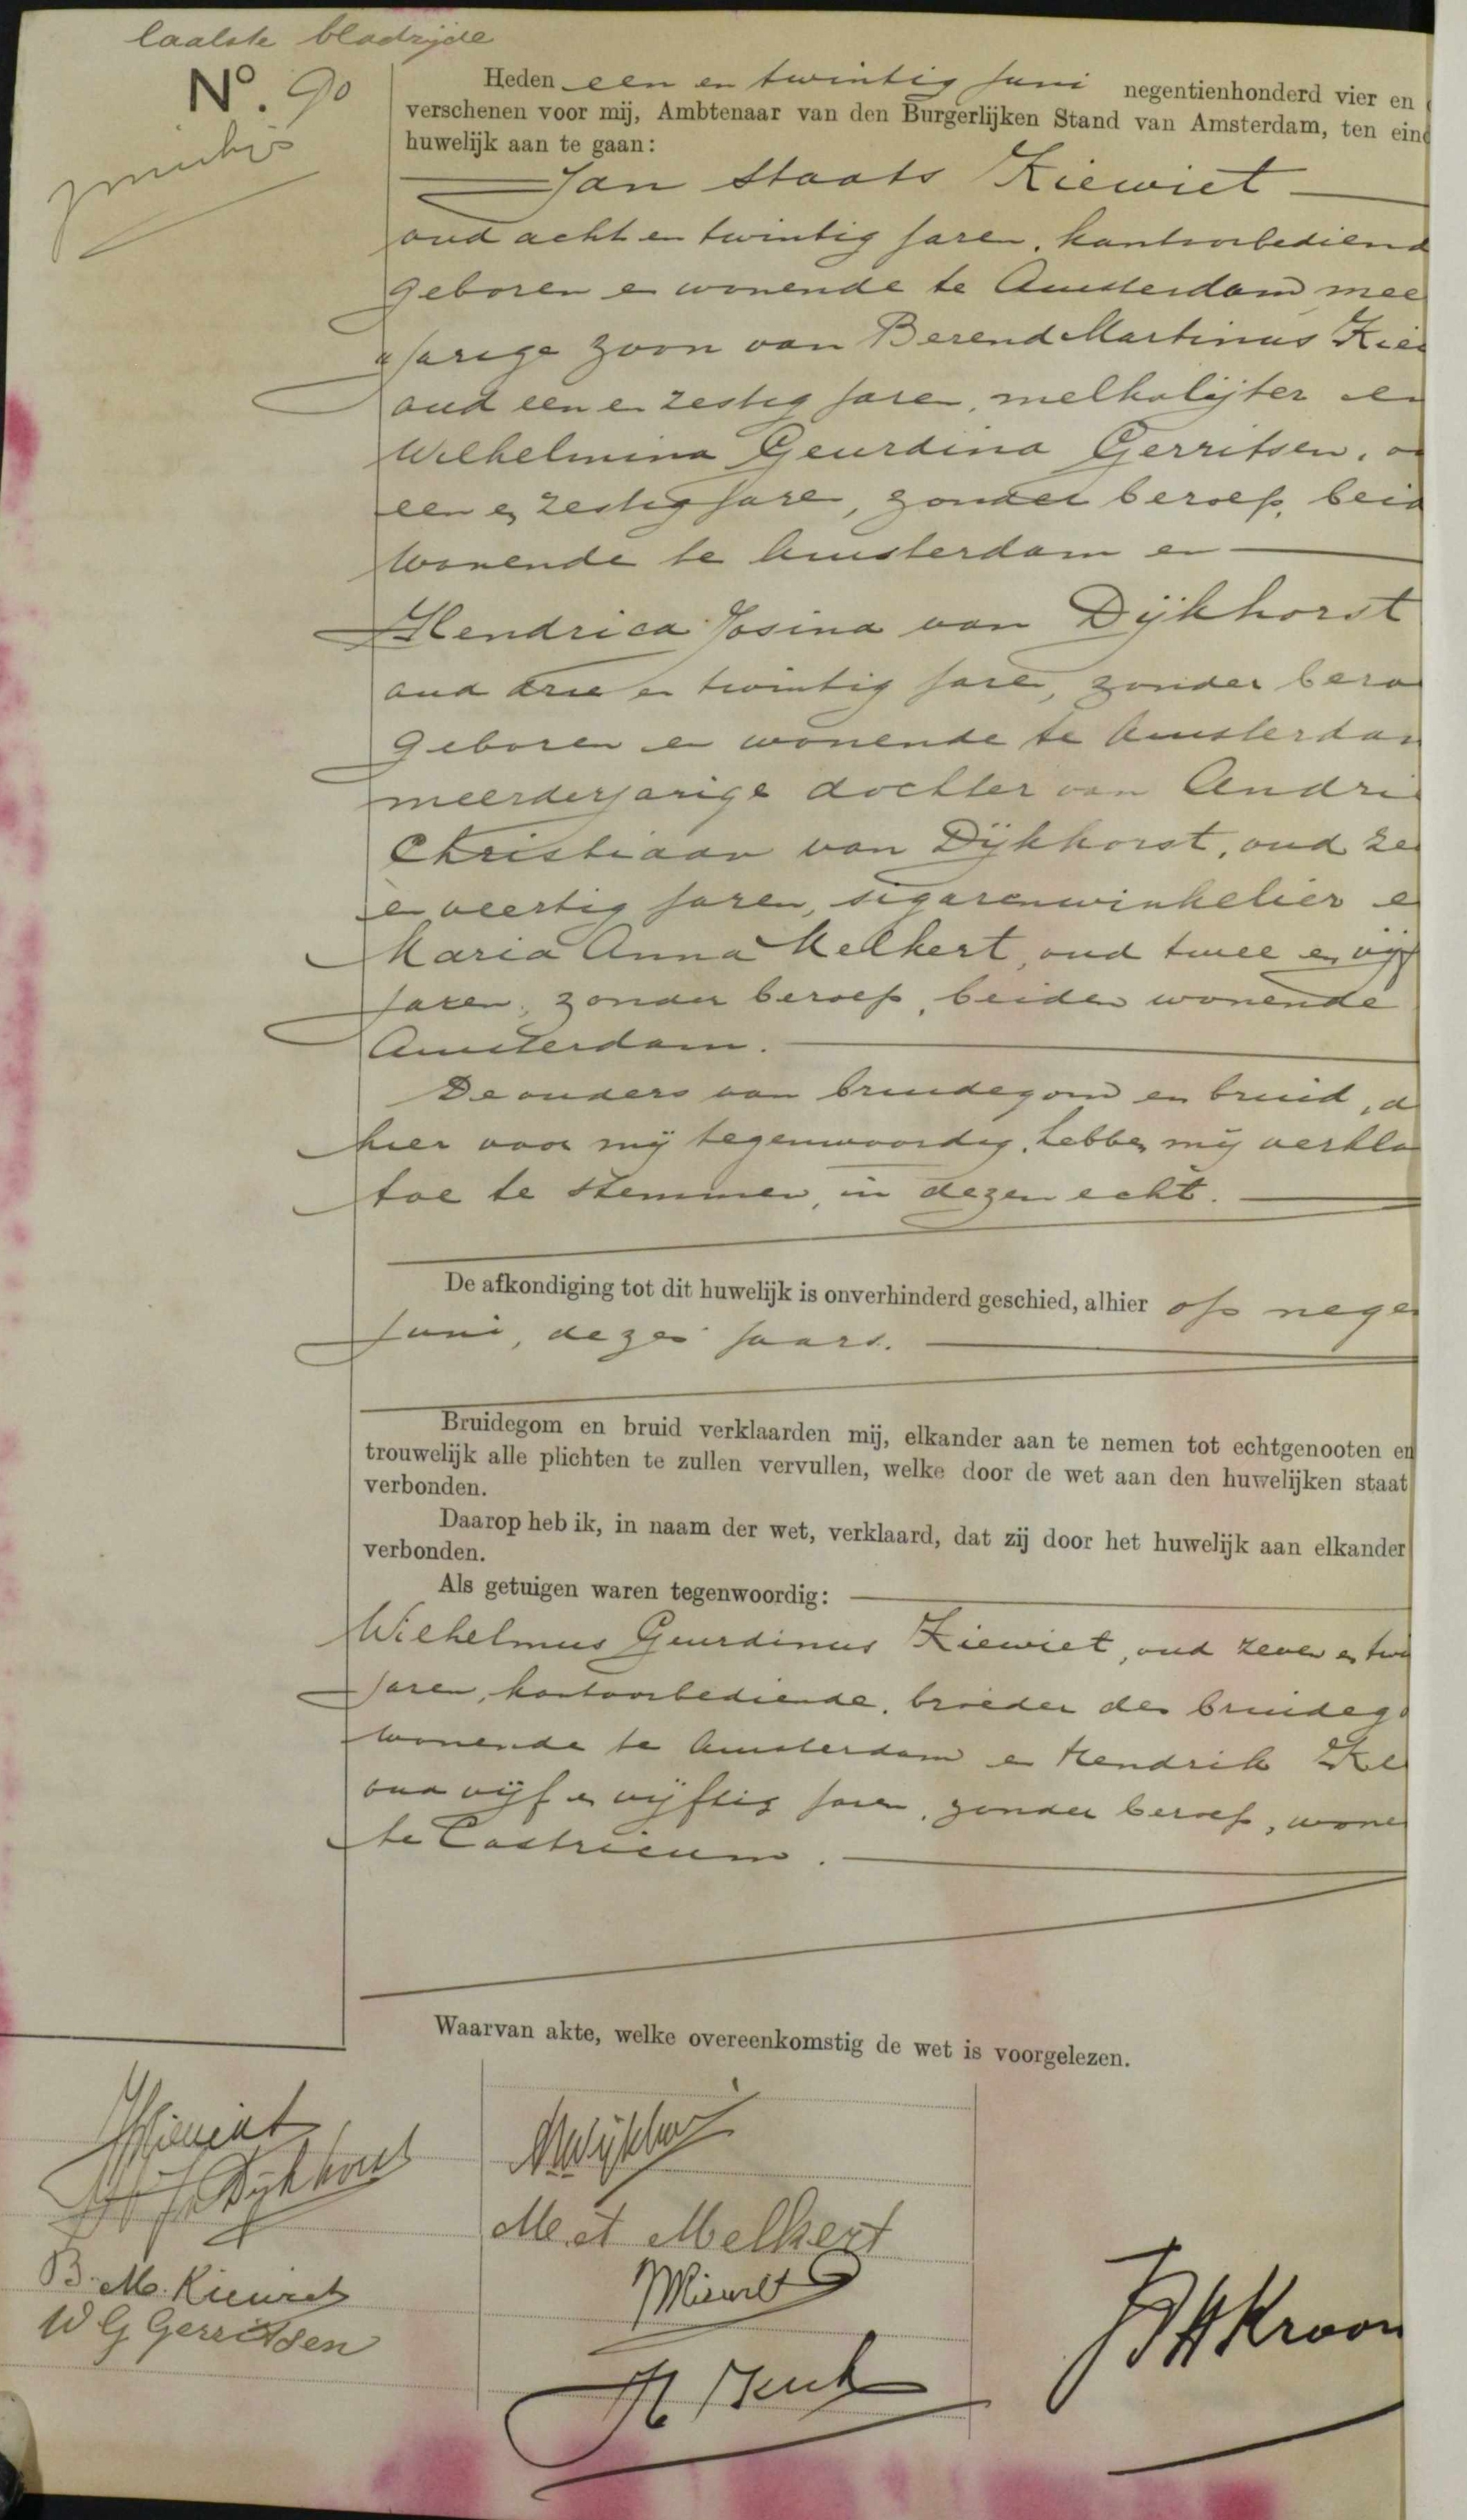 laatste bladzijde
Nº. 90
Heden een en twintig Juni negentienhonderd vier en
verschenen voor mij, Ambtenaar van den Burgerlijken Stand van Amsterdam, ten eind
huwelijk aan te gaan:
Jan Staats Kiewiet
oud acht en twintig jaren, kantoorbediend
geboren en wonende te Amsterdam mee
jarige zoon van Berend Martinus Kiew
oud een en zestig jaren, melkslijter en
Wilhelmina Geurdina Gerritsen, o
een en zestig jaren, zonder beroep, beid
wonende te Amsterdam en
Hendrica Josina van Dijkhorst
oud drie en twintig jaren, zonder bero
geboren en wonende te Amsterdam
meerderjarige dochter van Andri
Christiaan van Dijkhorst, oud ze
en veertig jaren, sigarenwinkelier e
Maria Anna Melkert, oud twee en vijf
jaren, zonder beroep, beiden wonende
Amsterdam.
De ouders van bruidegom en bruid, a
hier voor mij tegenwoordig, hebben mij verkla
toe te stemmen, in dezen echt.
De afkondiging tot dit huwelijk is onverhinderd geschied, alhier op nege
Juni, dezes jaars.
Bruidegom en bruid verklaarden mij, elkander aan te nemen tot echtgenooten en
trouwelijk alle plichten te zullen vervullen, welke door de wet aan den huwelijken staat
verbonden.
Daarop heb ik, in naam der wet, verklaard, dat zij door het huwelijk aan elkander
verbonden.
Als getuigen waren tegenwoordig:
Wilhelmus Geurdinus Kiewiet, oud zeven en twi
jaren, kantoorbediende, broeder des bruidego
wonende te Amsterdam en Hendrik
oud vijf en vijftig jaren, zonder beroep, wonen
te Castricum.
Waarvan akte, welke overeenkomstig de wet is voorgelezen.
Dijkhorst
M A Melkert
B. M. Kiewiet
W G Gerritsen
Kroon